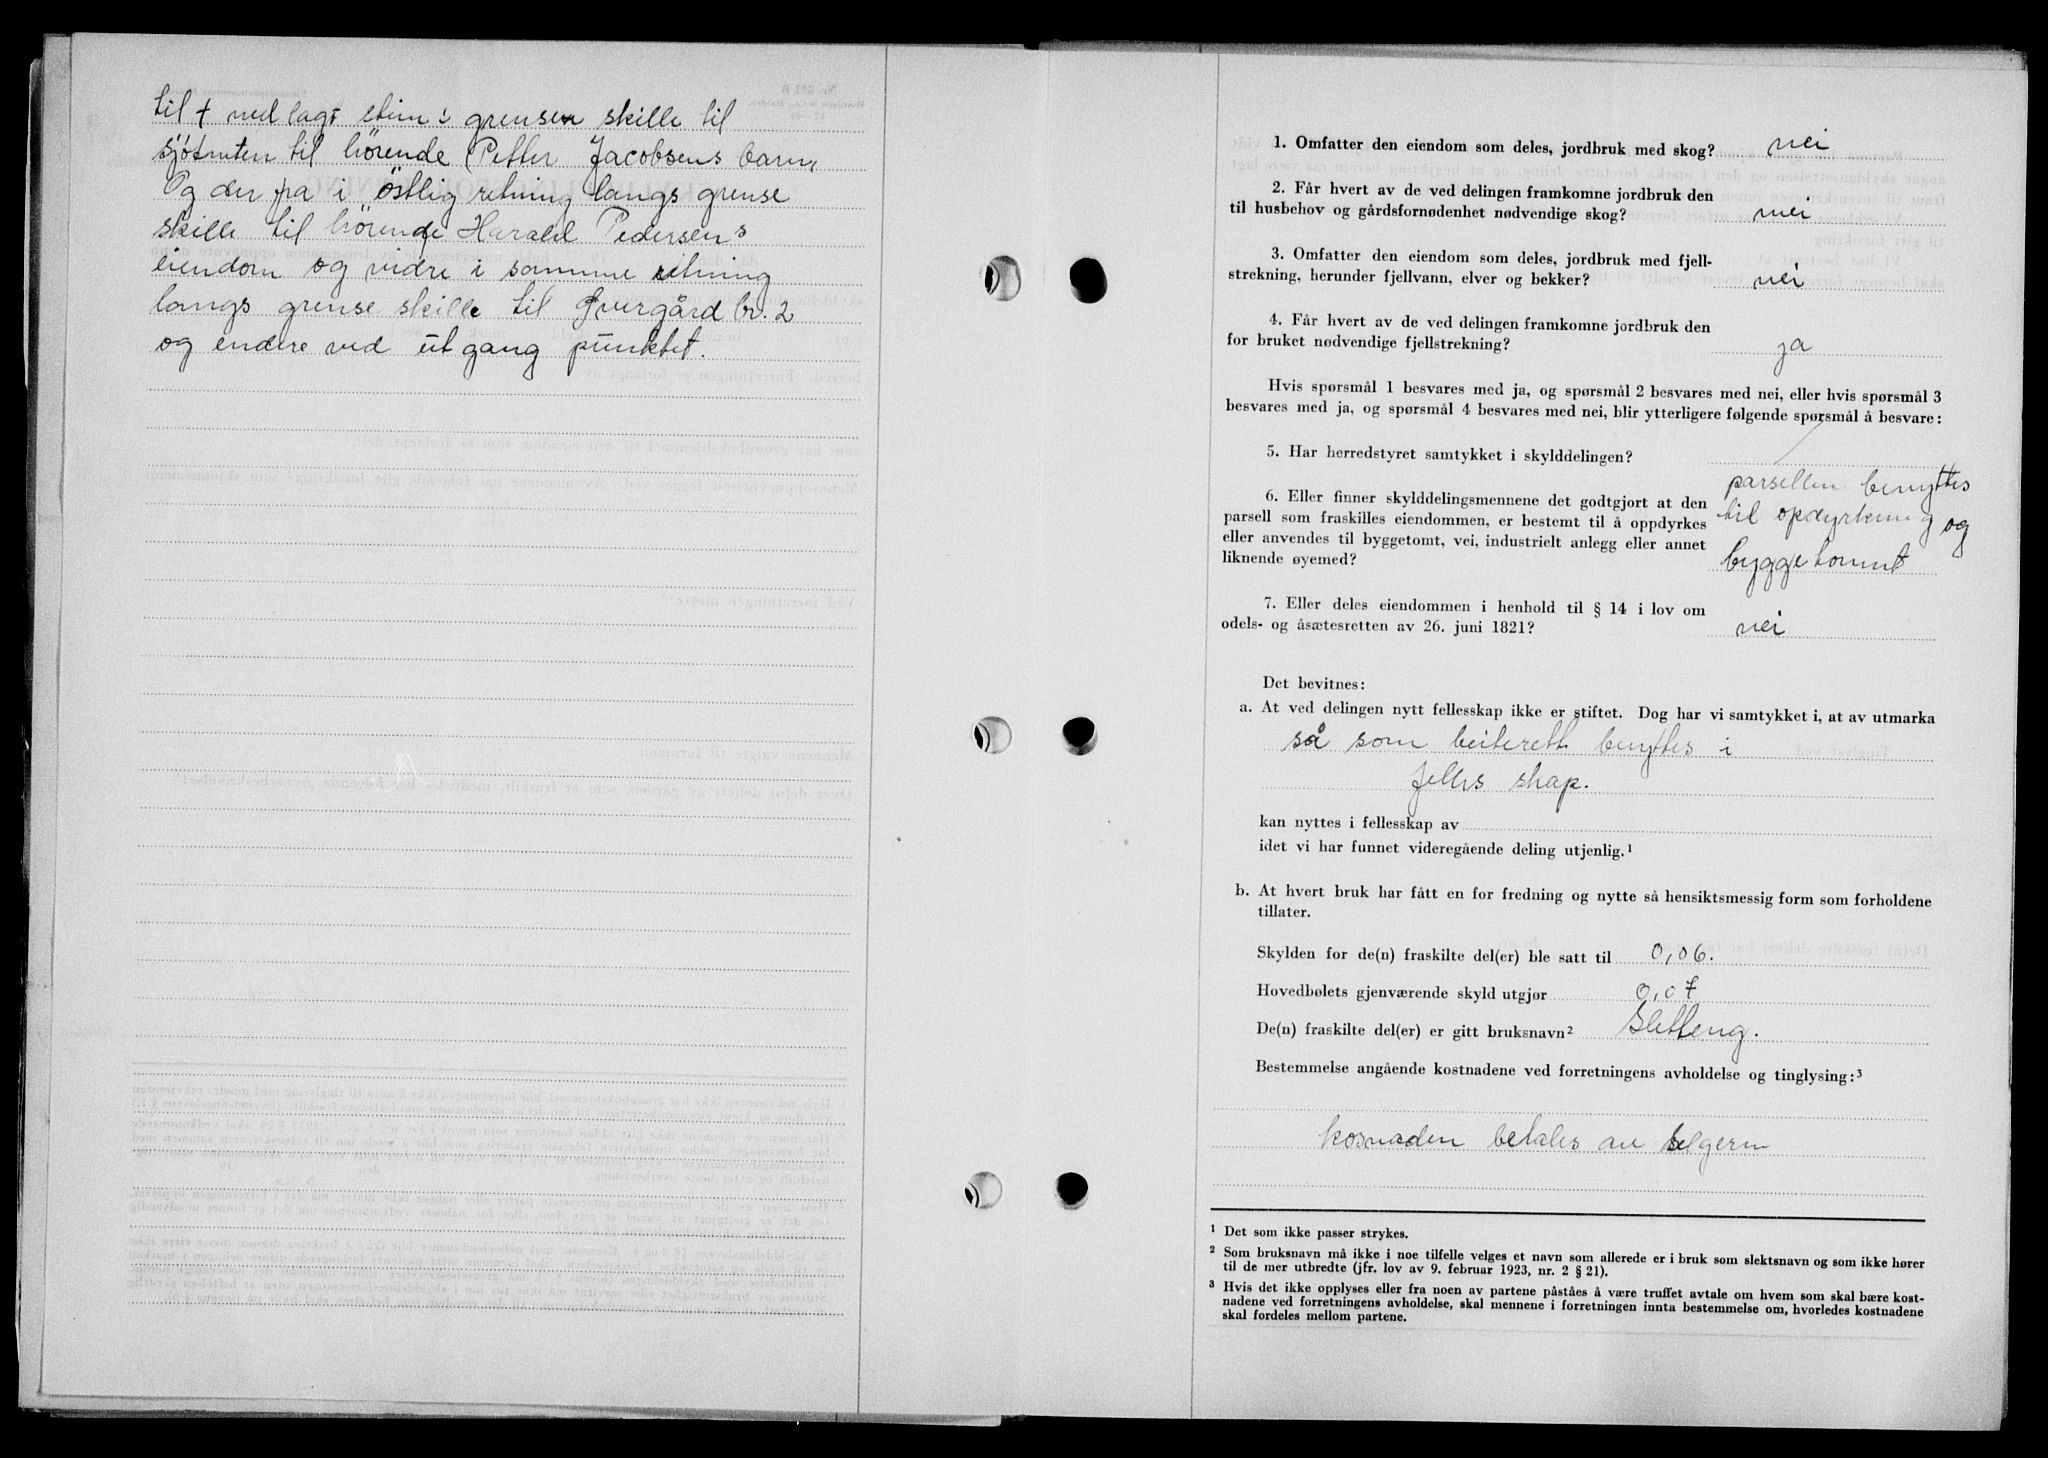 til + ned lagt stein i grensen skille til
sjötmten til hörende (Petter Jacobsens barn,
Og der pa i östlig retning langs grense
skille til hörende Harald Pedersens
eiendom og vidre i samme retning
langs grense skille til Ivergård br. 2
og endre ved utgang punktet.
1. Omfatter den eiendom som deles, jordbruk med skog? nei
2. Får hvert av de ved delingen framkomne jordbruk den
til husbehov og gårdsfornødenhet nødvendige skog? nei
3. Omfatter den eiendom som deles, jordbruk med fjell-
strekning, herunder fjellvann, elver og bekker? nei
4. Får hvert av de ved delingen framkomne jordbruk den
for bruket nødvendige fjellstrekning? ja
Hvis spørsmål 1 besvares med ja, og spørsmål 2 besvares med nei, eller hvis spørsmål 3
besvares med ja, og spørsmål 4 besvares med nei, blir ytterligere følgende spørsmål å besvare:
5. Har herredstyret samtykket i skylddelingen? /
6. Eller finner skylddelingsmennene det godtgjort at den
parsell som fraskilles eiendommen, er bestemt til å oppdyrkes
eller anvendes til byggetomt, vei, industrielt anlegg eller annet
liknende øyemed?
parsellen benyttes
til opdyrkning og
byggetommt
7. Eller deles eiendommen i henhold til § 14 i lov om
odels- og åsætesretten av 26. juni 1821? nei
Det bevitnes:
a. At ved delingen nytt fellesskap ikke er stiftet. Dog har vi samtykket i, at av utmarka
så som beiterett benyttes i
felles skap.
kan nyttes i fellesskap av
idet vi har funnet videregående deling utjenlig.¹
b. At hvert bruk har fått en for fredning og nytte så hensiktsmessig form som forholdene
tillater.
Skylden for de(n) fraskilte del(er) ble satt til 0,06.
Hovedbølets gjenværende skyld utgjør 0,07
De(n) fraskilte del(er) er gitt bruksnavn² Sletteng.
Bestemmelse angående kostnadene ved forretningens avholdelse og tinglysing:³
kosnaden betales av selgern
¹ Det som ikke passer strykes.
² Som bruksnavn må ikke i noe tilfelle velges et navn som allerede er i bruk som slektsnavn og som ikke hører
til de mer utbredte (jfr. lov av 9. februar 1923, nr. 2 § 21).
³ Hvis det ikke opplyses eller fra noen av partene påståes å være truffet avtale om hvem som skal bære kost-
nadene ved forretningens avholdelse, skal mennene i forretningen innta bestemmelse om, hvorledes kostnadene
skal fordeles mellom partene.